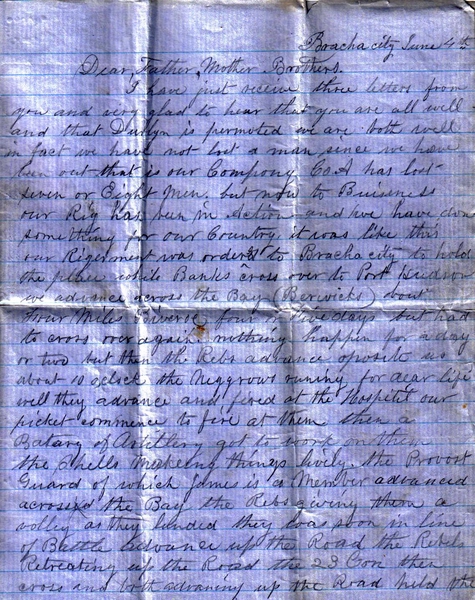 Bracha city June 4th
Dear Father, Mother Brothers.
I have just receive three letters from
you and very glad to hear that you are all well
and that is permoted we are both well
in fact we have not lost a man since we have
been out that is our Company Co A has lost
seven or Eight Men. but now to Buisness
our Rig has been in Action and we have don
something for our Country it was like this
our Rigerment was orderd to Bracha city to hold
the place while Banks cross over to Port Hudson
we advance across the Bay (Berwicks) bout
Four Miles four or five days but had
to cross over again nothing happen for a day
or two but then the Rebs advance oposite us
about 10 oclock the Neggrows runing for dear life
well they advance and fired at the Hospital our
picket commence to fire at them then a
Batary of Artillery got to work on them
the shells makeing things lively. the Provost
Guard of which James is a Member advanced
across the Bay the Rebs giving them a
volley as they landed they was soon in line
of Battle advance up the Road the Rebels
Retreating up the Road the 2d Con then
cross and both advancing up the Road held the